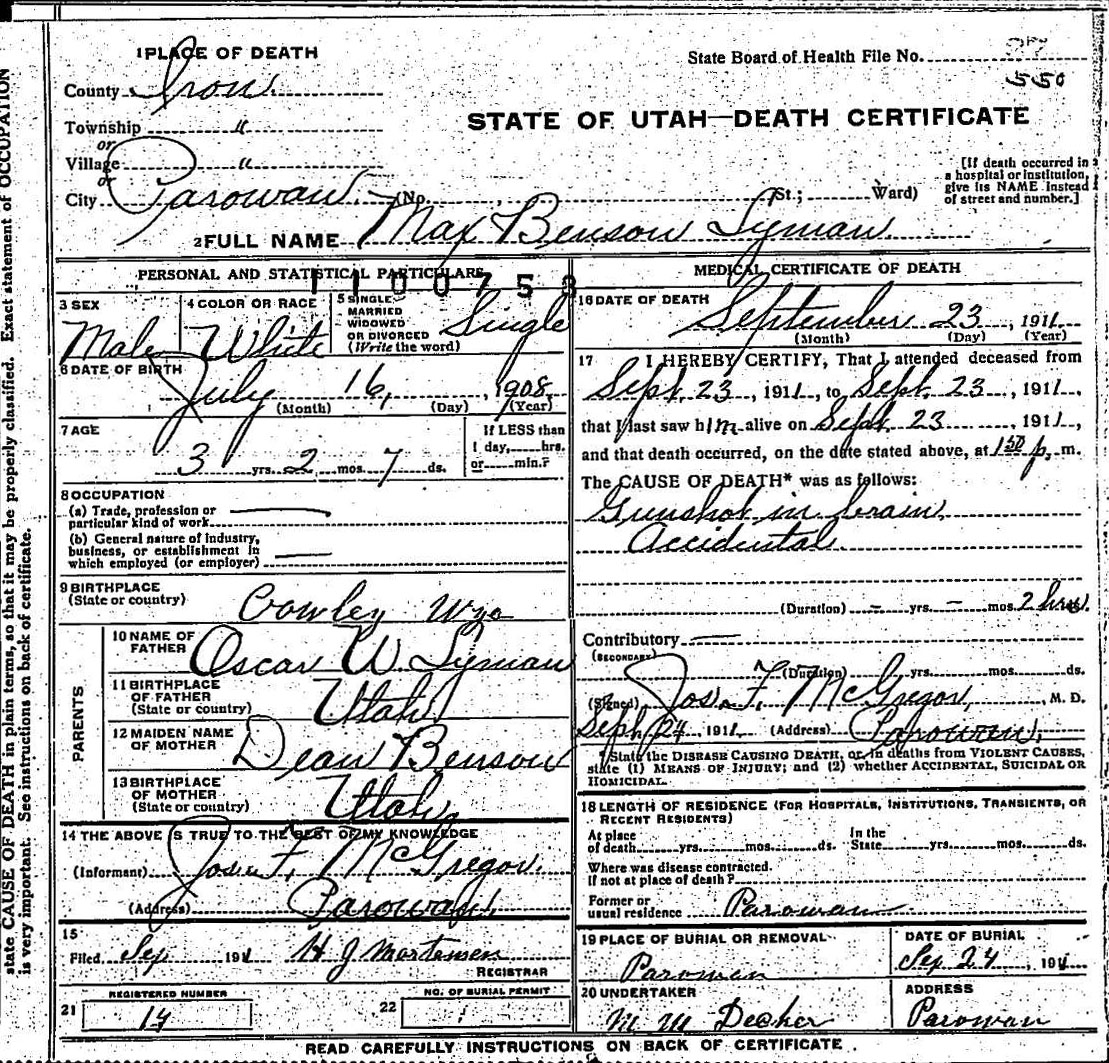 state CAUSE OF DEATH in plain terms, so that it may be properly classified. Exact statement of OCCUPATION
is very important. See instructions on back of certificate.
1 PLACE OF DEATH
State Board of Health File No. 27
550
County Iron
STATE OF UTAH—DEATH CERTIFICATE
Township "
or
Village "
or
City Parowan (No. St.; Ward)
[If death occurred in
a hospital or institution,
give its NAME instead
of street and number.]
2 FULL NAME Max Benson Lyman
PERSONAL AND STATISTICAL PARTICULARS
1100753
3 SEX
Male
4 COLOR OR RACE
White
5 SINGLE
MARRIED
WIDOWED
OR DIVORCED
(Write the word)
Single
6 DATE OF BIRTH
July 16, 1908
(Month) (Day) (Year)
7 AGE
3 yrs. 2 mos. 7 ds.
If LESS than
1 day, hrs.
or min.?
8 OCCUPATION
(a) Trade, profession or
particular kind of work
(b) General nature of industry,
business, or establishment in
which employed (or employer)
9 BIRTHPLACE
(State or country)
Cowley Wyo
PARENTS
10 NAME OF
FATHER
Oscar W. Lyman
11 BIRTHPLACE
OF FATHER
(State or country)
Utah
12 MAIDEN NAME
OF MOTHER
Dean Benson
13 BIRTHPLACE
OF MOTHER
(State or country)
Utah
14 THE ABOVE IS TRUE TO THE BEST OF MY KNOWLEDGE
(Informant) Jos. F. McGregor
(Address) Parowan
15
Filed Sep 1911 H J Mortensen
REGISTRAR
REGISTERED NUMBER
21 14
NO. OF BURIAL PERMIT
22
MEDICAL CERTIFICATE OF DEATH
16 DATE OF DEATH
September 23, 1911
(Month) (Day) (Year)
17 I HEREBY CERTIFY, That I attended deceased from
Sept. 23, 1911, to Sept. 23, 1911
that I last saw him alive on Sept. 23, 1911,
and that death occurred, on the date stated above, at 1 50 p. m.
The CAUSE OF DEATH* was as follows:
Gunshot in brain
Accidental
(Duration) – yrs. – mos. 2 hrs.
Contributory
(SECONDARY)
(Duration) yrs. mos. ds.
(Signed) Jos. F. McGregor, M. D.
Sept. 24, 1911 (Address) Parowan.
*State the DISEASE CAUSING DEATH, or in deaths from VIOLENT CAUSES,
state (1) MEANS OF INJURY; and (2) whether ACCIDENTAL, SUICIDAL OR
HOMICIDAL.
18 LENGTH OF RESIDENCE (FOR HOSPITALS, INSTITUTIONS, TRANSIENTS, OR
RECENT RESIDENTS)
At place
of death yrs. mos. ds.
In the
State yrs. mos. ds.
Where was disease contracted.
If not at place of death?
Former or
usual residence Parowan
19 PLACE OF BURIAL OR REMOVAL
Parowan
DATE OF BURIAL
Sep 24, 1911
20 UNDERTAKER
M M Decker
ADDRESS
Parowan
READ CAREFULLY INSTRUCTIONS ON BACK OF CERTIFICATE